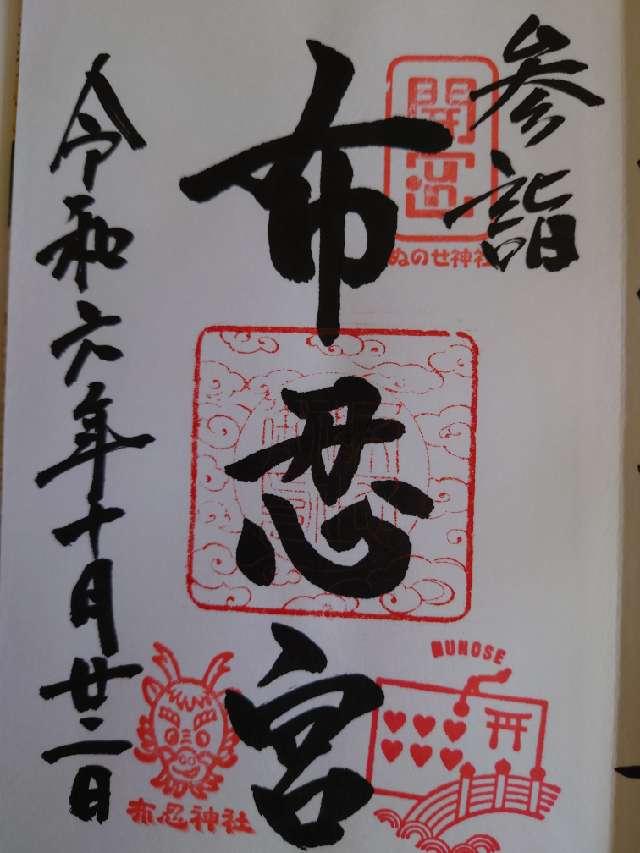 参詣
開運
ぬのせ神社
布忍宮
令和六年十月廿二日
布忍神社
NUNOSE